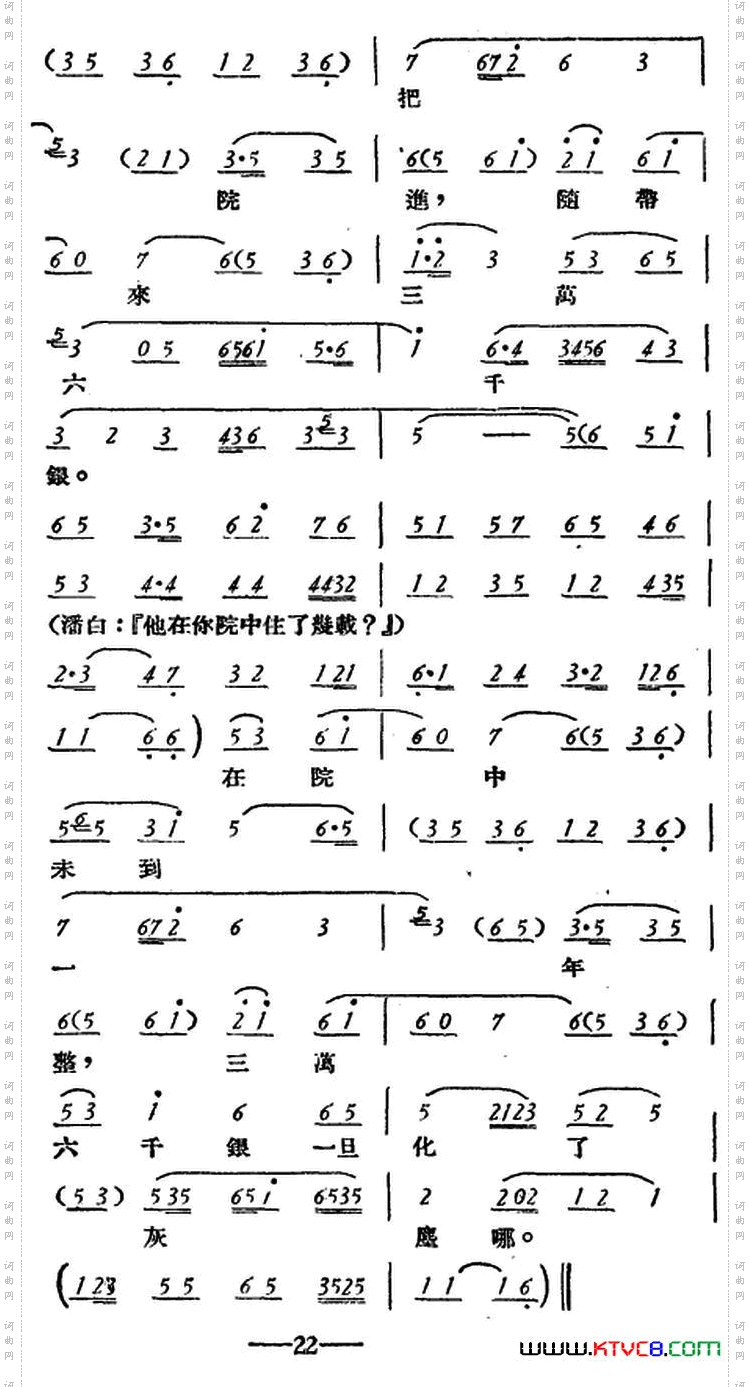 (3 5 3 6 1 2 3 6) | 7 6 7 2 6 3 |
把
5 3 (2 1) 3·5 3 5 | 6(5 6 i) 2 i 6 i |
院 進， 隨 帶
6 0 7 6(5 3 6) | i·2 3 5 3 6 5 |
來 三 萬
5 3 0 5 6 5 6 i 5·6 | i 6·4 3 4 5 6 4 3
六 千
3 2 3 4 3 6 3 5 3 | 5 — 5(6 5 i |
銀。
6 5 3·5 6 2 7 6 | 5 1 5 7 6 5 4 6 |
5 3 4·4 4 4 4 4 3 2 | 1 2 3 5 1 2 4 3 5 |
(潘白：『他在你院中住了幾載？』)
2·3 4 7 3 2 1 2 1 | 6·1 2 4 3·2 1 2 6 |
1 1 6 6) 5 3 6 i | 6 0 7 6(5 3 6) |
在 院 中
5 6 5 3 i 5 6·5 | (3 5 3 6 1 2 3 6) |
未 到
7 6 7 2 6 3 | 5 3 (6 5) 3·5 3 5 |
一 年
6(5 6 i) 2 i 6 i | 6 0 7 6(5 3 6) |
整， 三 萬
5 3 i 6 6 5 | 5 2 1 2 3 5 2 5 |
六 千 銀 一旦 化 了
(5 3) 5 3 5 6 5 i 6 5 3 5 | 2 2 0 2 1 2 1 |
灰 塵 哪。
(1 2 3 5 5 6 5 3 5 2 5 | 1 1 1 6) ‖
——22——
www.KTVC8.com
词曲网